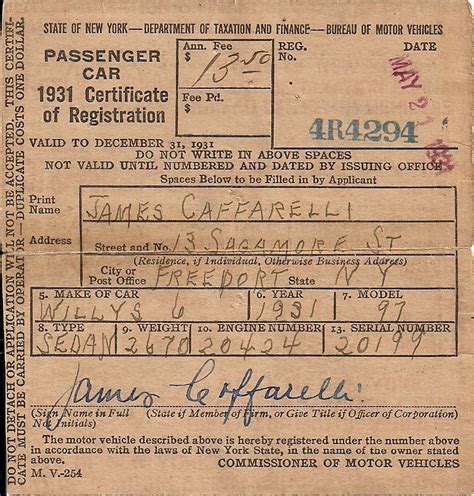 STATE OF NEW YORK—DEPARTMENT OF TAXATION AND FINANCE—BUREAU OF MOTOR VEHICLES
PASSENGER CAR
1931 Certificate of Registration
Ann. Fee $ 13.50
Fee Pd. $
REG. No.
4R4294
DATE
MAY 21 1931
VALID TO DECEMBER 31, 1931
DO NOT WRITE IN ABOVE SPACES
NOT VALID UNTIL NUMBERED AND DATED BY ISSUING OFFICE
Spaces Below to be Filled in by Applicant
Print Name JAMES CAFFARELLI
Address Street and No. 13 SAGAMORE ST
(Residence, if Individual, Otherwise Business Address)
City or Post Office FREEPORT State N Y
5. MAKE OF CAR 6. YEAR 7. MODEL
WILLYS 6 1931 97
8. TYPE 9. WEIGHT 10. ENGINE NUMBER 13. SERIAL NUMBER
SEDAN 2670 20424 20199
James Caffarelli
(Sign Name in Full Not Initials) (State if Member of Firm, or Give Title if Officer of Corporation)
The motor vehicle described above is hereby registered under the number above
in accordance with the laws of New York State, in the name of the owner stated
above. COMMISSIONER OF MOTOR VEHICLES
M. V.-254
DO NOT DETACH OR APPLICATION WILL NOT BE ACCEPTED. THIS CERTIFI-
CATE MUST BE CARRIED BY OPERATOR—DUPLICATE COSTS ONE DOLLAR.